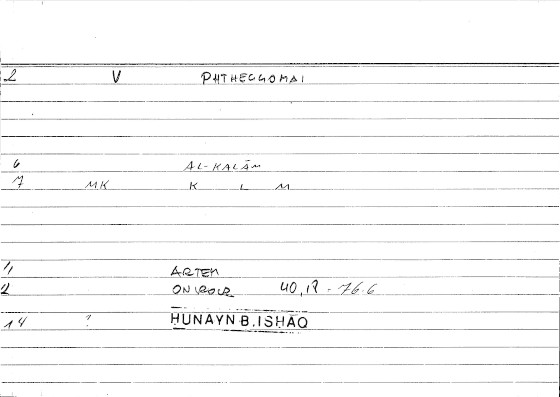 2 V PHTHEGGOMAI
6 AL-KALĀM
7 MK K L M
1 ARTEM
2 ONIROCR 40,18 - 76.6
14 ? HUNAYN B. ISHĀQ